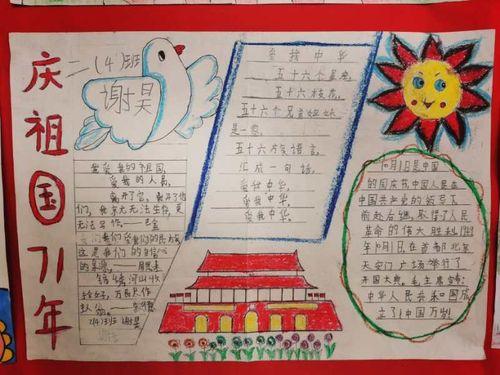 庆祖国71年
二(4)班
谢昊
爱我中华
五十六个星座
五十六枝花
五十六个兄弟姐妹
是一家
五十六族语言
汇成一句话
爱我中华
爱我中华
爱我中华
我爱我的祖国,
爱我的人民,
离开了它,离开了他
们,我就无法生存,更
无法写作。——巴金
锦绣河山收
(4)班 谢昊
10月1日是中国
的国庆节中国人民在
中国共产党的领导下
前赴后继,取得了人民
革命的伟大胜利1949
年10月1日在首都北京
天安门广场举行了
开国大典。毛主席宣布:
中华人民共和国成
立了!中国万岁!